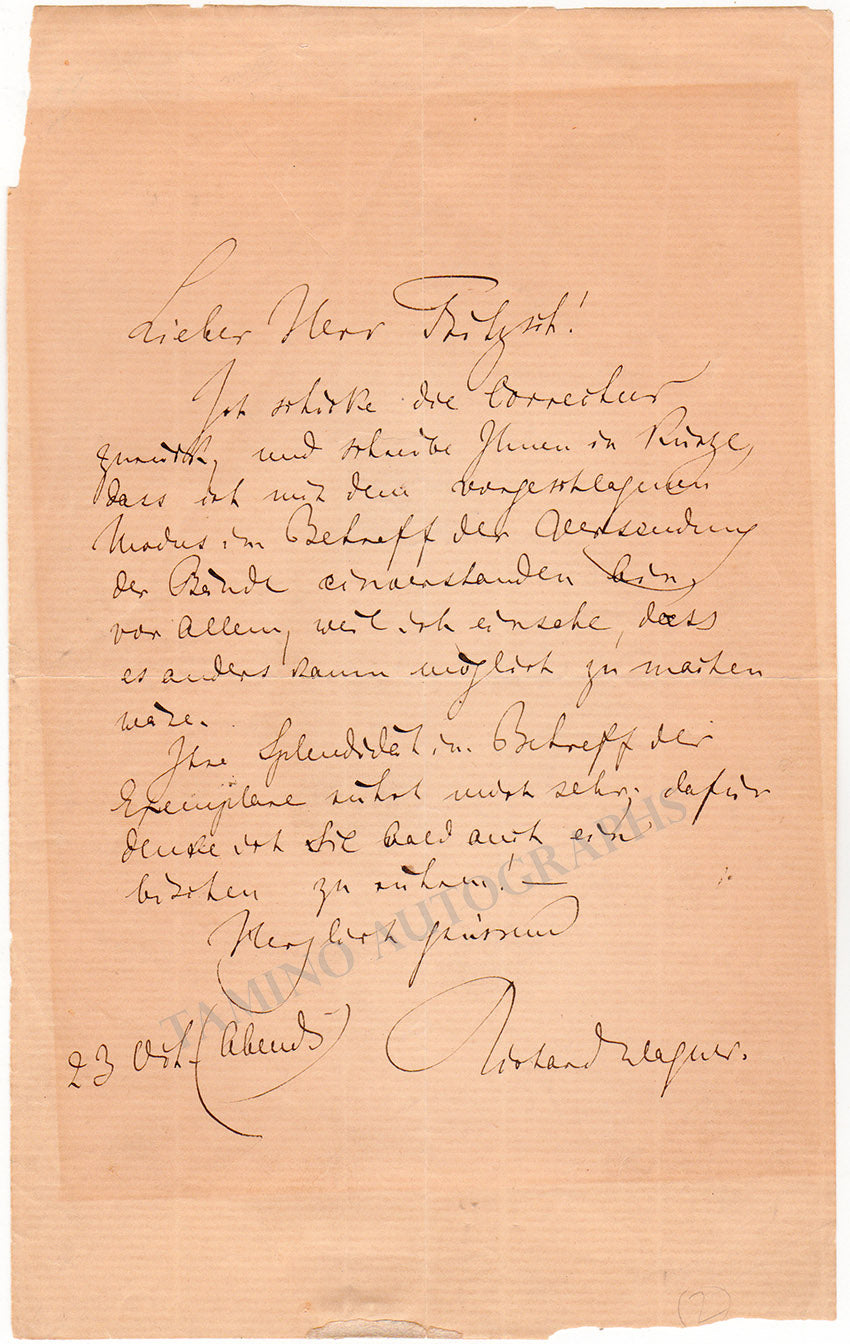 Lieber Herr Fritzsch!
Ich schicke die Correctur
zurück, und schreibe Ihnen in Kürze,
dass ich mit dem vorgeschlagenen
Modus im Betreff der Versendung
der Bände einverstanden bin,
vor Allem, weil ich einsehe, dass
es anders kaum möglich zu machen
wäre.
Ihre Splendidät im Betreff der
Exemplare rührt mich sehr; dafür
denke ich Sie bald auch ein
bischen zu rühren! —
Herzlich grüssend
23 Oct. (Abends)
Richard Wagner.
TAMINO AUTOGRAPHS
(2)